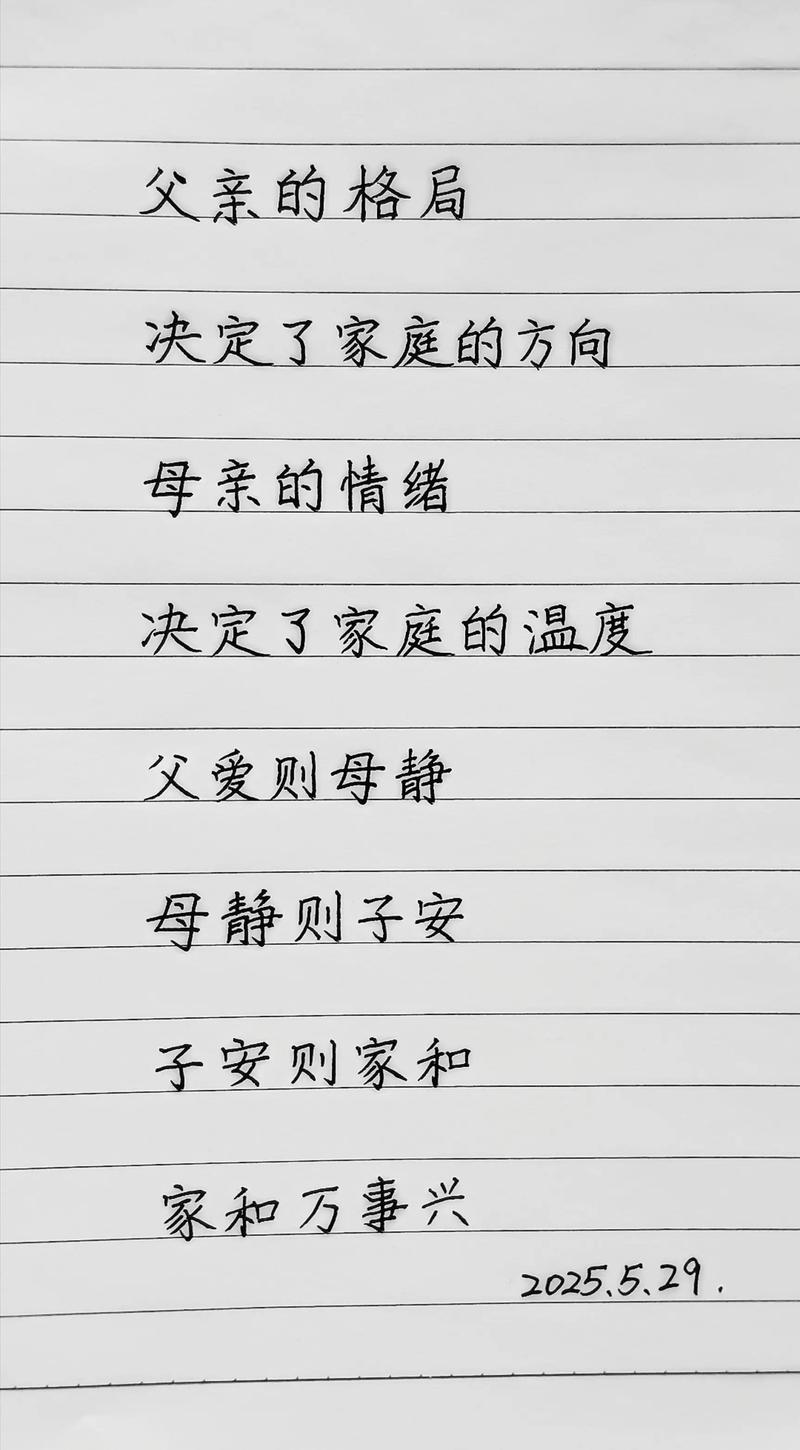 父亲的格局
决定了家庭的方向
母亲的情绪
决定了家庭的温度
父爱则母静
母静则子安
子安则家和
家和万事兴
2025.5.29.